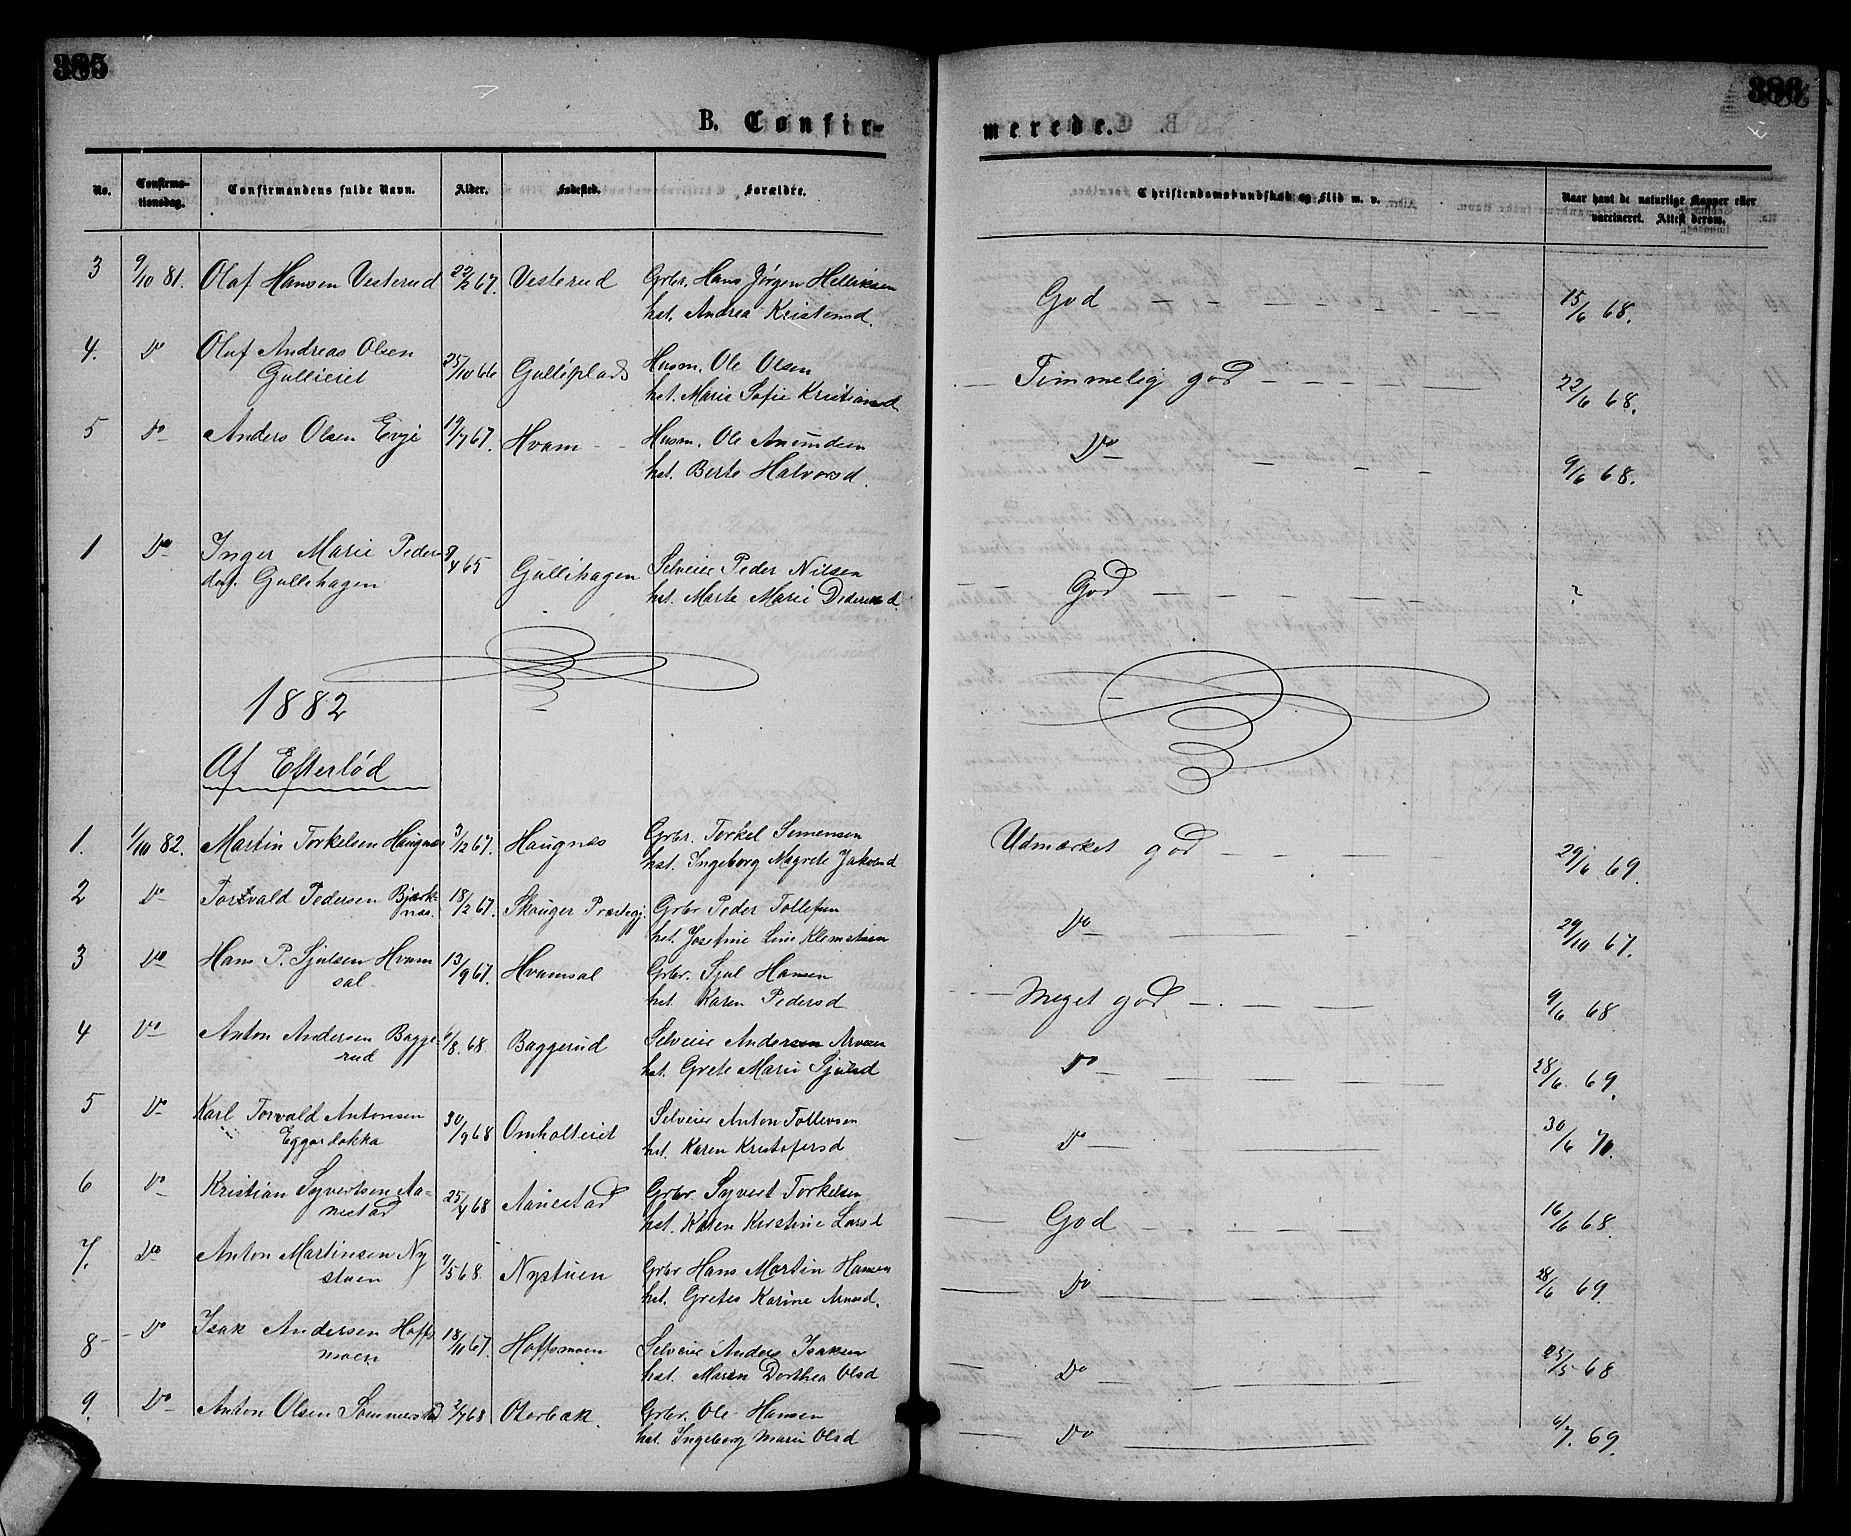 385
386
B. Confir-
merede.
No.
Confirma-
tionsdag.
Confirmandens fulde Navn.
Alder.
Fødested.
Forældre.
Christendomskundskab og Flid m. v.
Naar havt de naturlige Kopper eller
vaccineret. Attest derom.
3 9/10 81. Olaf Hansen Vesterud 22/2 67. Vesterud Grbr. Hans Jørgen Helliksen God 15/6 68.
hst. Andrea Kristensd.
4. Do Oluf Andreas Olsen 25/10 66 Gulliplads Husm. Ole Olsen Temmelig god 22/6 68.
Gullieiet hst. Marie Sofie Kristiansd
5 Do Anders Olsen Evje 19/7 67. Hvam Husm. Ole Amundsen Do 9/6 68.
hst. Berte Halvorsd.
1 Do Inger Marie Peders 9/4 65 Gullihagen Selveier Peder Nilsen God ?
dat. Gullihagen hst. Marte Marie Dideriksd.
1882
Af Efterlød
1. 1/10 82. Martin Torkelsen Haugnes 3/12 67. Haugnes Grbr. Torkel Simensen Udmærket god 29/6 69.
hst. Ingeborg Magrete Jakobsd
2 Do Torvald Pedersen Bjerk- 18/2 67. Skouger Præstegj. Grbr Peder Tollefsen Do 29/10 67.
næs hst. Josefine Line Klemetsen
3 Do Hans P. Sjulsen Hvam 13/9 67. Hvamsal Grbr. Sjul Hansen Meget god 9/6 68
sal hst Karen Pedersd
4 Do Anton Andersen Bagge- 6/8. 68. Baggerud Selveier Andersen Arvesen Do 28/6. 69.
rud hst. Grete Marie Sjulsd
5 Do Karl Torvald Antonsen 30/9 68 Omholteiet Selveier Anton Tollevsen Do 30/6 70.
Eggerdokka hst. Karen Kristofersd
6 Do Kristian Syvertsen Aa- 25/4 68 Aanestad Grbr. Syvert Torkelsen God 16/6 68.
nestad hst. Karen Kirstine Larsd
7. Do Anton Martinsen Ny 9/5 68. Nystuen Grbr Hans Martin Hansen Do 28/6 69.
stuen hst. Gretes Karine Arnesd.
8 Do Isak Andersen Hoffs 18/11 67. Hoffsmoen Selveier Anders Isaksen Do 25/5 68
moen hst. Maren Dorthea Olsd
9. Do Anton Olsen Sommerstad 2/7 68 Oterbæk. Grbr. Ole Hansen Do 6/7. 69.
hst. Ingeborg Marie Olsd